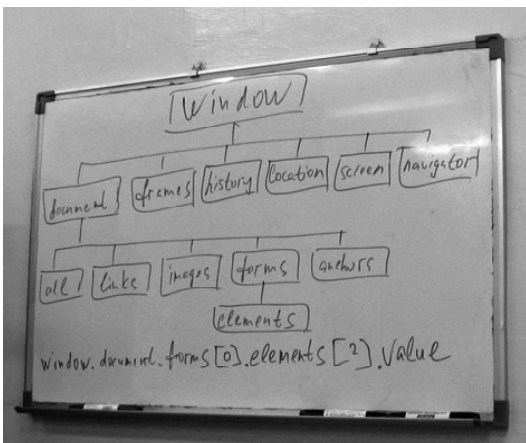 window
document frames history location screen navigator
all links images forms anchors
elements
window.document.forms[0].elements[2].value